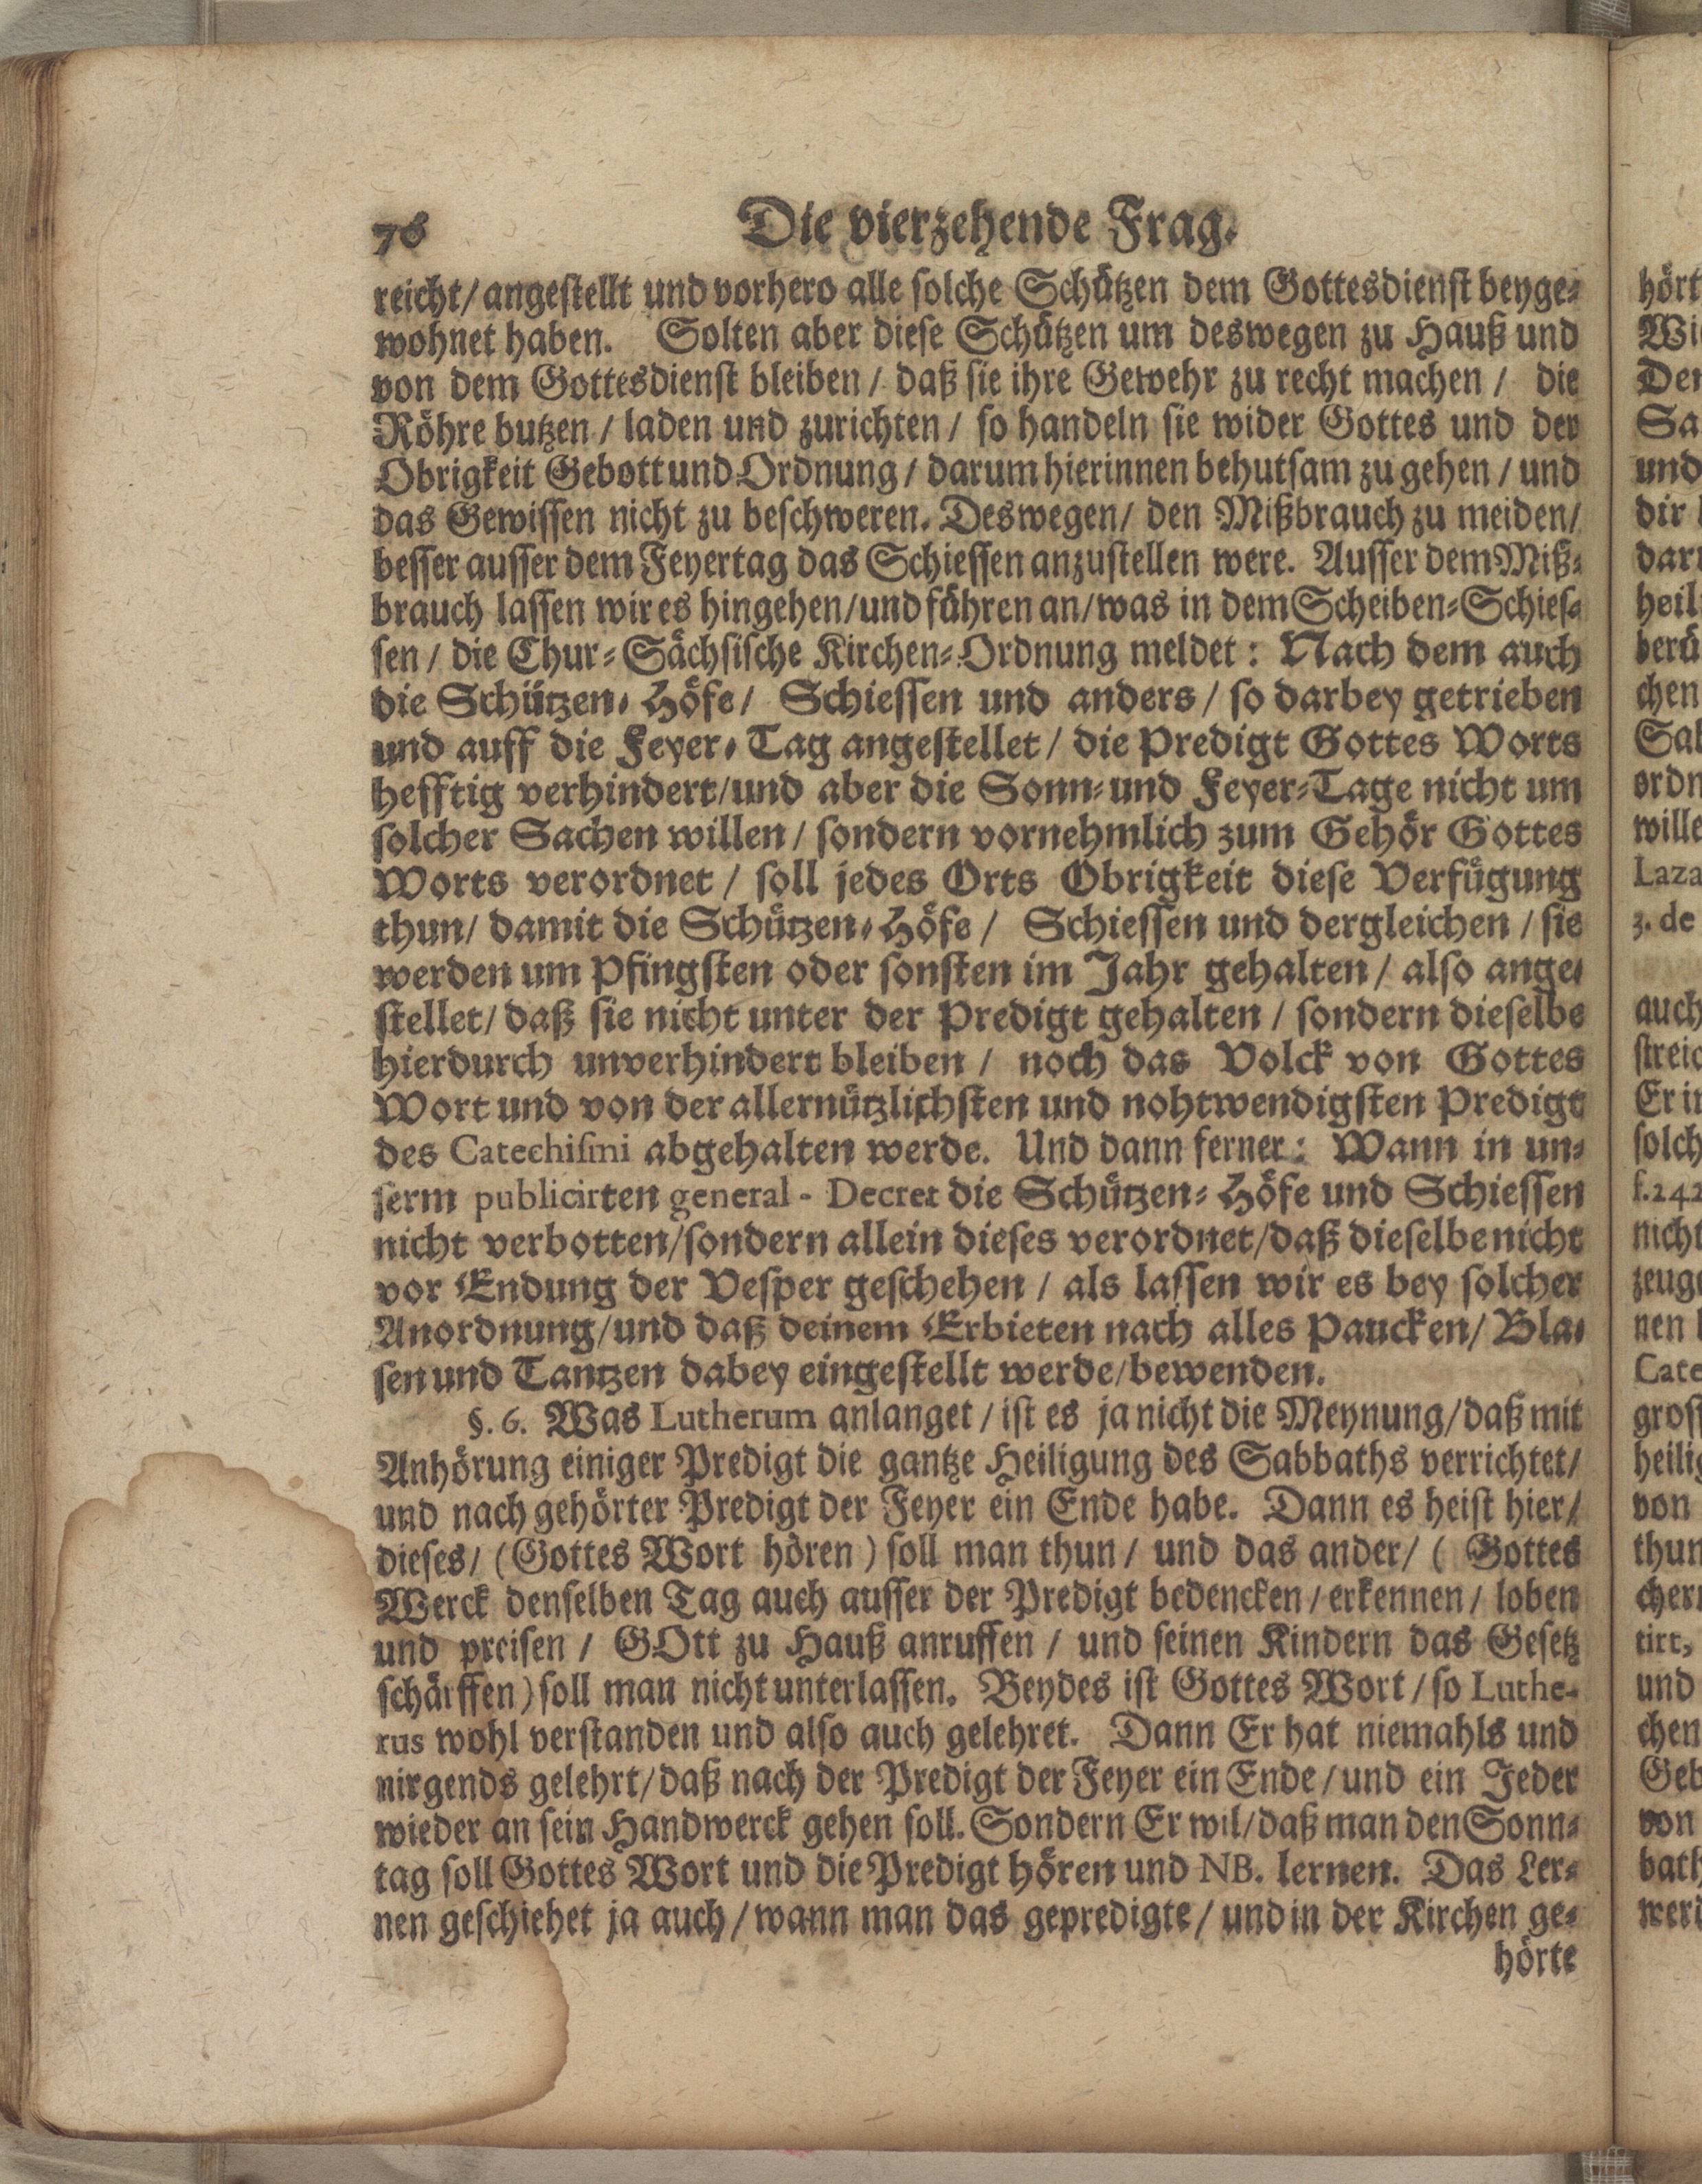 76 Die vierzehende Frag.
reicht/ angestellt und vorhero alle solche Schützen dem Gottesdienst beyge-
wohnet haben. Solten aber diese Schützen um deswegen zu Hauß und
von dem Gottesdienst bleiben / daß sie ihre Gewehr zu recht machen / die
Röhre butzen / laden und zurichten / so handeln sie wider Gottes und der
Obrigkeit Gebott und Ordnung / darum hierinnen behutsam zu gehen / und
das Gewissen nicht zu beschweren. Deswegen/ den Mißbrauch zu meiden/
besser ausser dem Feyertag das Schiessen anzustellen were. Ausser dem Miß-
brauch lassen wir es hingehen/und führen an/was in dem Scheiben-Schies-
sen / die Chur-Sächsische Kirchen-Ordnung meldet: Nach dem auch
die Schützen-Höfe/ Schiessen und anders / so darbey getrieben
und auff die Feyer-Tag angestellet / die Predigt Gottes Worts
hefftig verhindert/und aber die Sonn-und Feyer-Tage nicht um
solcher Sachen willen / sondern vornehmlich zum Gehör Gottes
Worts verordnet / soll jedes Orts Obrigkeit diese Verfügung
thun/ damit die Schützen-Höfe / Schiessen und dergleichen / sie
werden um Pfingsten oder sonsten im Jahr gehalten / also ange-
stellet/ daß sie nicht unter der Predigt gehalten / sondern dieselbe
hierdurch unverhindert bleiben / noch das Volck von Gottes
Wort und von der allernützlichsten und nohtwendigsten Predigt
des Catechismi abgehalten werde. Und dann ferner: Wann in un-
serm publicirten general-Decret die Schützen-Höfe und Schiessen
nicht verbotten/sondern allein dieses verordnet/daß dieselbe nicht
vor Endung der Vesper geschehen / als lassen wir es bey solcher
Anordnung/und daß deinem Erbieten nach alles Paucken/ Bla-
sen und Tantzen dabey eingestellt werde/bewenden.
§. 6. Was Lutherum anlanget / ist es ja nicht die Meynung/daß mit
Anhörung einiger Predigt die gantze Heiligung des Sabbaths verrichtet/
und nach gehörter Predigt der Feyer ein Ende habe. Dann es heist hier/
dieses/ (Gottes Wort hören) soll man thun / und das ander/ ( Gottes
Werck denselben Tag auch ausser der Predigt bedencken / erkennen / loben
und preisen / GOtt zu Hauß anruffen / und seinen Kindern das Gesetz
schärffen) soll man nicht unterlassen. Beydes ist Gottes Wort / so Luthe-
rus wohl verstanden und also auch gelehret. Dann Er hat niemahls und
nirgends gelehrt/daß nach der Predigt der Feyer ein Ende / und ein Jeder
wieder an sein Handwerck gehen soll. Sondern Er wil/daß man den Sonn-
tag soll Gottes Wort und die Predigt hören und NB. lernen. Das Ler-
nen geschiehet ja auch / wann man das gepredigte / und in der Kirchen ge-
hörte